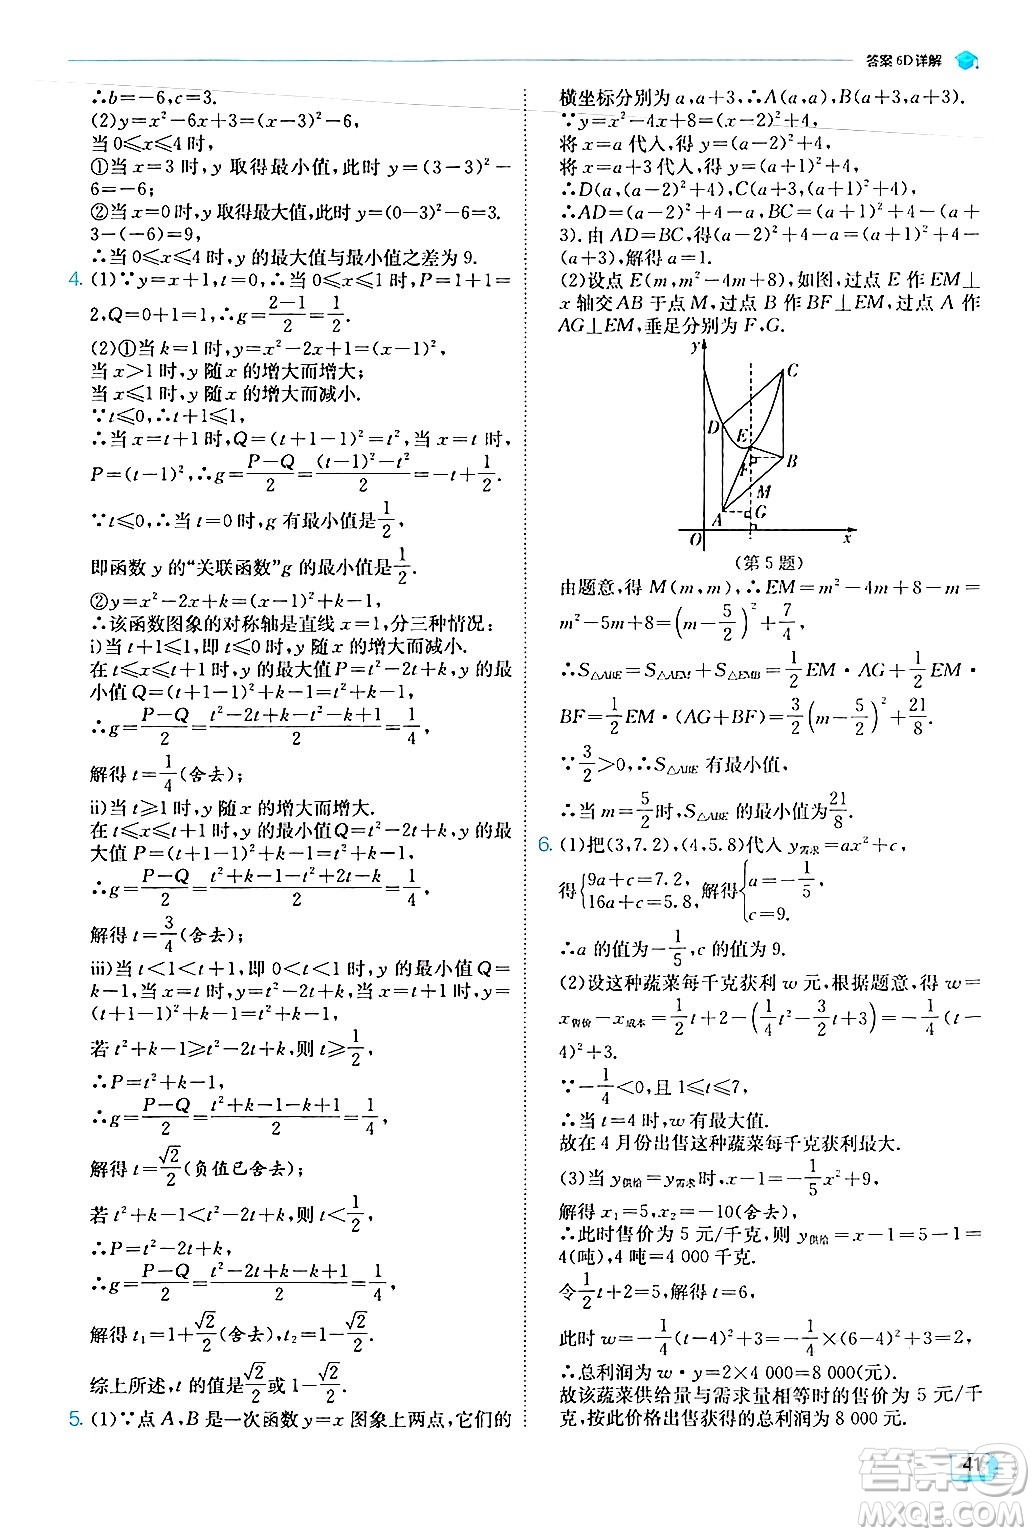 答案 6D 详解
∴b=-6,c=3.
(2)y=x²-6x+3=(x-3)²-6,
当 0≤x≤4 时,
①当 x=3 时,y 取得最小值,此时 y=(3-3)²-
6=-6;
②当 x=0 时,y 取得最大值,此时 y=(0-3)²-6=3.
3-(-6)=9,
∴当 0≤x≤4 时,y 的最大值与最小值之差为 9.
4. (1)∵y=x+1,t=0,∴当 0≤x≤1 时,P=1+1=
2,Q=0+1=1,∴g=(2-1)/2=1/2.
(2)①当 k=1 时,y=x²-2x+1=(x-1)²,
当 x>1 时,y 随 x 的增大而增大;
当 x≤1 时,y 随 x 的增大而减小.
∵t≤0,∴t+1≤1,
∴当 x=t+1 时,Q=(t+1-1)²=t²,当 x=t 时,
P=(t-1)²,∴g=(P-Q)/2=((t-1)²-t²)/2=-t+1/2.
∵t≤0,∴当 t=0 时,g 有最小值是1/2,
即函数 y 的“关联函数”g 的最小值是1/2.
②y=x²-2x+k=(x-1)²+k-1,
∴该函数图象的对称轴是直线 x=1,分三种情况:
i)当 t+1≤1,即 t≤0 时,y 随 x 的增大而减小.
在 t≤x≤t+1 时,y 的最大值 P=t²-2t+k,y 的最
小值 Q=(t+1-1)²+k-1=t²+k-1,
∴g=(P-Q)/2=(t²-2t+k-t²-k+1)/2=1/4,
解得 t=1/4(舍去);
ii)当 t≥1 时,y 随 x 的增大而增大.
在 t≤x≤t+1 时,y 的最小值Q=t²-2t+k,y 的最
大值 P=(t+1-1)²+k-1=t²+k-1,
∴g=(P-Q)/2=(t²+k-1-t²+2t-k)/2=1/4,
解得 t=3/4(舍去);
iii)当 t<1<t+1,即 0<t<1 时,y 的最小值 Q=
k-1,当 x=t 时,y=t²-2t+k,当 x=t+1 时,y=
(t+1-1)²+k-1=t²+k-1,
若 t²+k-1≥t²-2t+k,则 t≥1/2,
∴P=t²+k-1,
∴g=(P-Q)/2=(t²+k-1-k+1)/2=1/4,
解得 t=√2/2(负值已舍去);
若 t²+k-1<t²-2t+k,则 t<1/2,
∴P=t²-2t+k,
∴g=(P-Q)/2=(t²-2t+k-k+1)/2=1/4,
解得 t₁=1+√2/2(舍去),t₂=1-√2/2.
综上所述,t 的值是√2/2或 1-√2/2.
5. (1)∵点 A,B 是一次函数 y=x 图象上两点,它们的
横坐标分别为 a,a+3,∴A(a,a),B(a+3,a+3).
∵y=x²-4x+8=(x-2)²+4,
将 x=a 代入,得 y=(a-2)²+4,
将 x=a+3 代入,得 y=(a+1)²+4,
∴D(a,(a-2)²+4),C(a+3,(a+1)²+4),
∴AD=(a-2)²+4-a,BC=(a+1)²+4-(a+
3).由 AD=BC,得(a-2)²+4-a=(a+1)²+4-
(a+3),解得 a=1.
(2)设点 E(m,m²-4m+8),如图,过点 E 作 EM⊥
x 轴交 AB 于点 M,过点 B 作 BF⊥EM,过点 A 作
AG⊥EM,垂足分别为 F,G.
y
C
D
E
F
B
M
A
G
O
x
(第 5 题)
由题意,得 M(m,m),∴EM=m²-4m+8-m=
m²-5m+8=(m-5/2)²+7/4,
∴S△ABE=S△AEM+S△EMB=1/2EM·AG+1/2EM·
BF=1/2EM·(AG+BF)=3/2(m-5/2)²+21/8.
∵3/2>0,∴S△ABE 有最小值,
∴当 m=5/2时,S△ABE 的最小值为21/8.
6. (1)把(3,7.2),(4,5.8)代入 y需求=ax²+c,
得{9a+c=7.2, 16a+c=5.8,解得{a=-1/5, c=9.
∴a 的值为-1/5,c 的值为 9.
(2)设这种蔬菜每千克获利 w 元,根据题意,得 w=
x售价-x成本=1/2t+2-(1/4t²-3/2t+3)=-1/4(t-
4)²+3.
∵-1/4<0,且 1≤t≤7,
∴当 t=4 时,w 有最大值.
故在 4 月份出售这种蔬菜每千克获利最大.
(3)当 y供给=y需求时,x-1=-1/5x²+9,
解得 x₁=5,x₂=-10(舍去),
∴此时售价为 5 元/千克,则 y供给=x-1=5-1=
4(吨),4 吨=4 000 千克.
令1/2t+2=5,解得 t=6,
此时 w=-1/4(t-4)²+3=-1/4×(6-4)²+3=2,
∴总利润为 w·y=2×4 000=8 000(元).
故该蔬菜供给量与需求量相等时的售价为 5 元/千
克,按此价格出售获得的总利润为 8 000 元.
41
答案圈
MXQE.COM